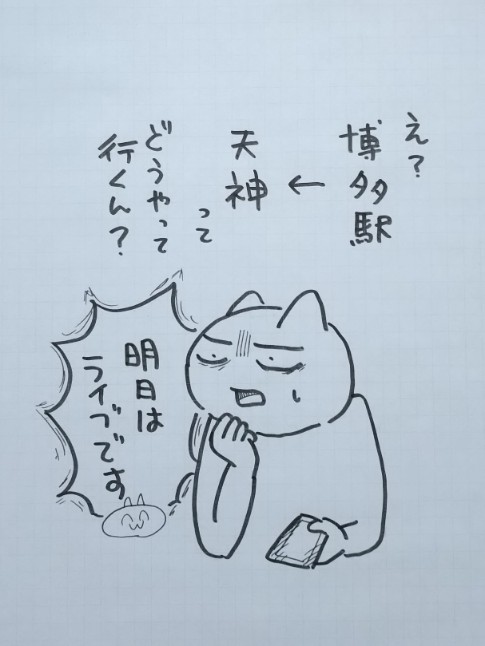 え？
博多駅
←
天神
って
どうやって
行くん？
明日は
ライブです